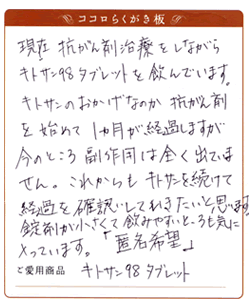 ココロらくがき板
現在 抗がん剤治療をしながら
キトサン98タブレットを飲んでいます。
キトサンのおかげなのか 抗がん剤
を始めて1ヵ月が経過しますが
今のところ副作用は全く出ていま
せん。これからもキトサンを続けて
経過を確認していきたいと思います。
錠剤が小さくて飲みやすいところも気に
入っています。「匿名希望」
ご愛用商品 キトサン98タブレット